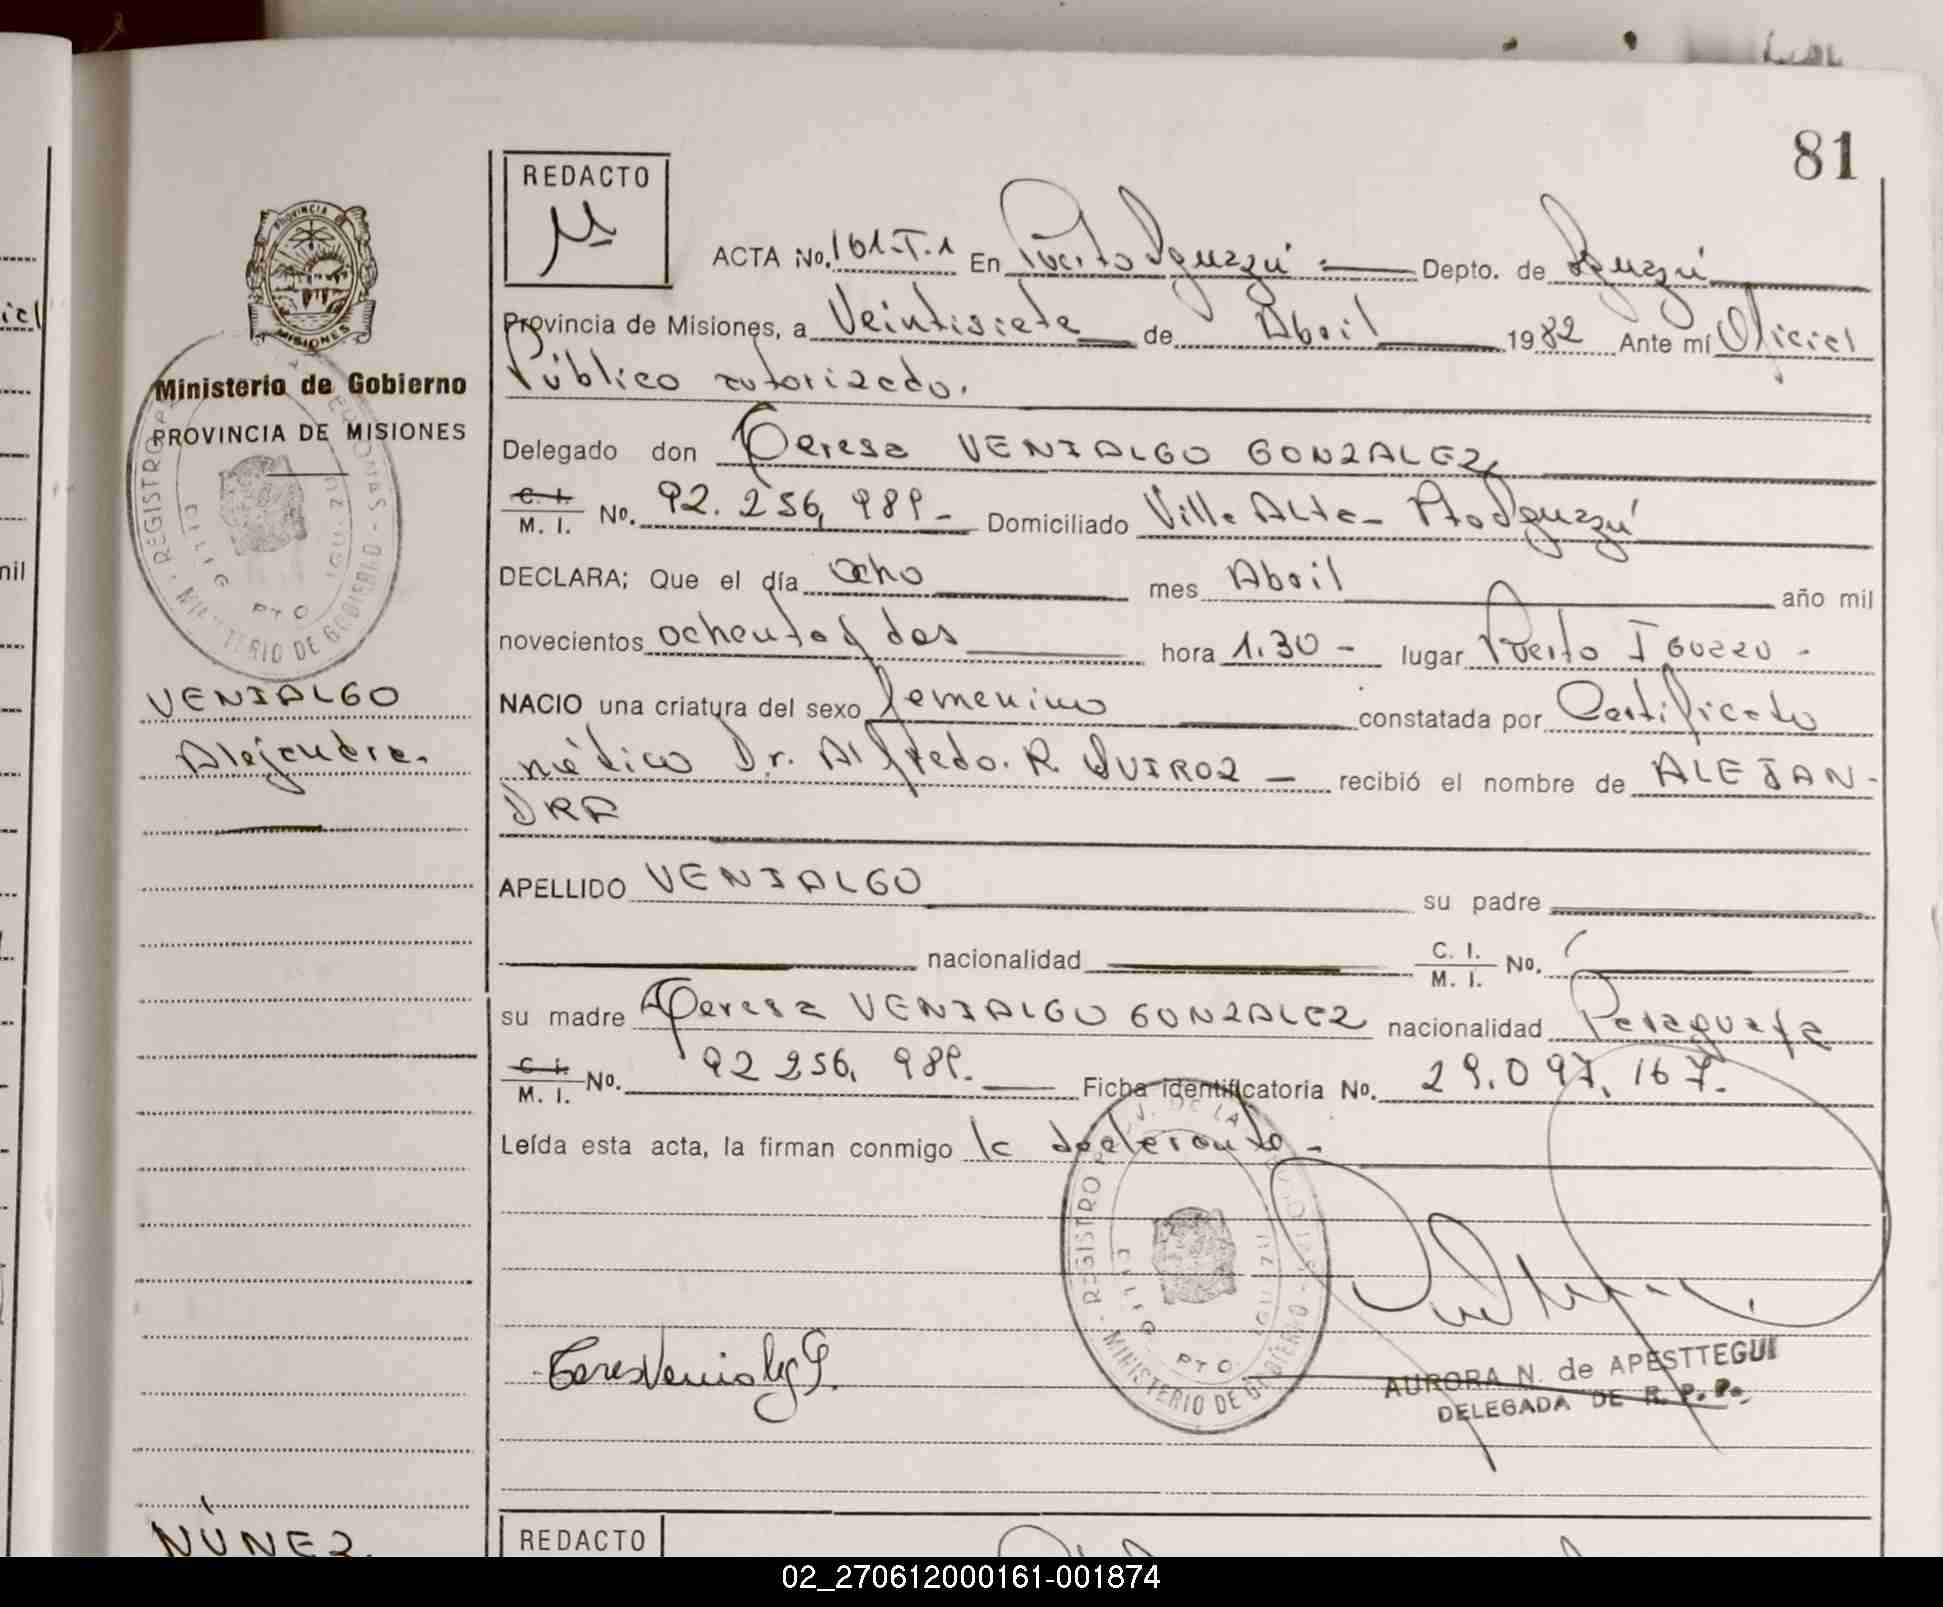 81
REDACTO
ACTA No. 161-T.1 En Puerto Iguazú Depto. de Iguazú
Provincia de Misiones, a Veintisiete de Abril 1982 Ante mí Oficial
Público autorizado.
PROVINCIA DE
MISIONES
Ministerio de Gobierno
PROVINCIA DE MISIONES
Delegado don Teresa VENIALGO GONZALEZ
C. I.
M. I. No. 92.256,989- Domiciliado Villa Alta- Pto Iguazú
DECLARA; Que el día ocho mes Abril año mil
novecientos ochenta y dos hora 1.30 - lugar Puerto IGUAZU -
NACIO una criatura del sexo femenino constatada por Certificado
médico Dr. Alfredo. R. QUIROZ - recibió el nombre de ALEJAN-
DRA
VENIALGO
Alejandra.
APELLIDO VENIALGO su padre
nacionalidad C. I.
M. I. No.
su madre Teresa VENIALGO GONZALEZ nacionalidad Paraguaya
C. I.
M. I. No. 92 256, 989. Ficha identificatoria No. 29.097.167.
Leída esta acta, la firman conmigo la declarante -
REGISTRO
MINISTERIO DE GOBIERNO
PTO IGUAZU
AURORA N. de APESTTEGUI
DELEGADA DE R. P. P.
NÚÑEZ
REDACTO
02_270612000161-001874